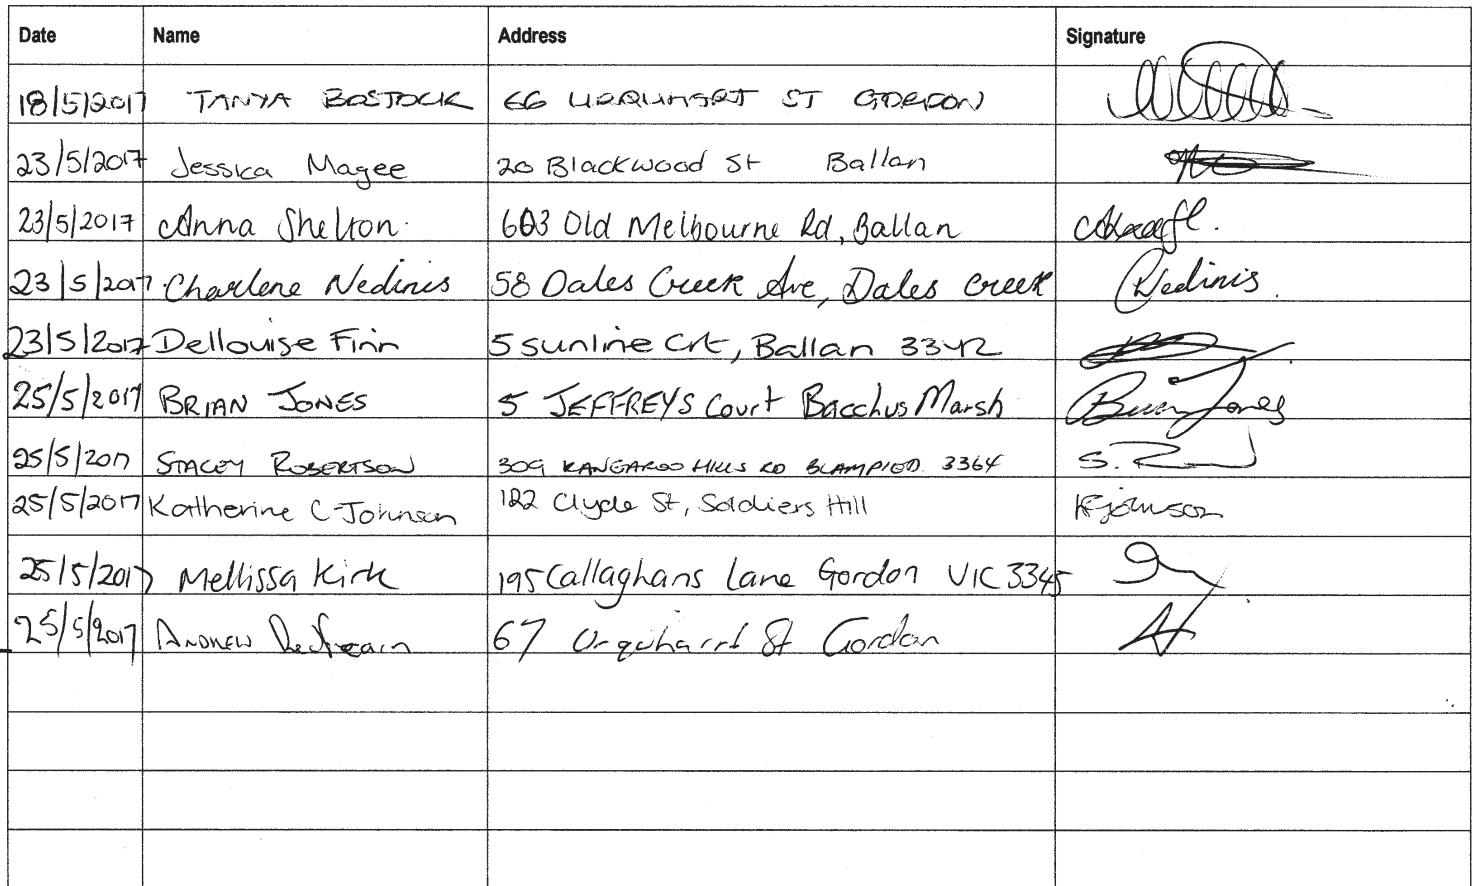 Date Name Address Signature
18/5/2017 TANYA BOSTOCK 66 URQUHART ST GORDON
23/5/2017 Jessica Magee 20 Blackwood St Ballan
23/5/2017 Anna Shelton. 603 Old Melbourne Rd, Ballan
23/5/2017 Charlene Nedinis 58 Dales Creek Ave, Dales Creek Nedinis
23/5/2017 Dellouise Finn 5 Sunline Crt, Ballan 3342
25/5/2017 BRIAN JONES 5 JEFFREYS Court Bacchus Marsh Brian Jones
25/5/2017 STACEY ROBERTSON 309 KANGAROO HILLS RD BLAMPIED 3364
25/5/2017 Katherine C Johnson 122 Clyde St, Soldiers Hill Kjohnson
25/5/2017 Mellissa Kirk 195 Callaghans Lane Gordon VIC 3345
25/5/2017 ANDREW 67 Urquharrt St Gordon